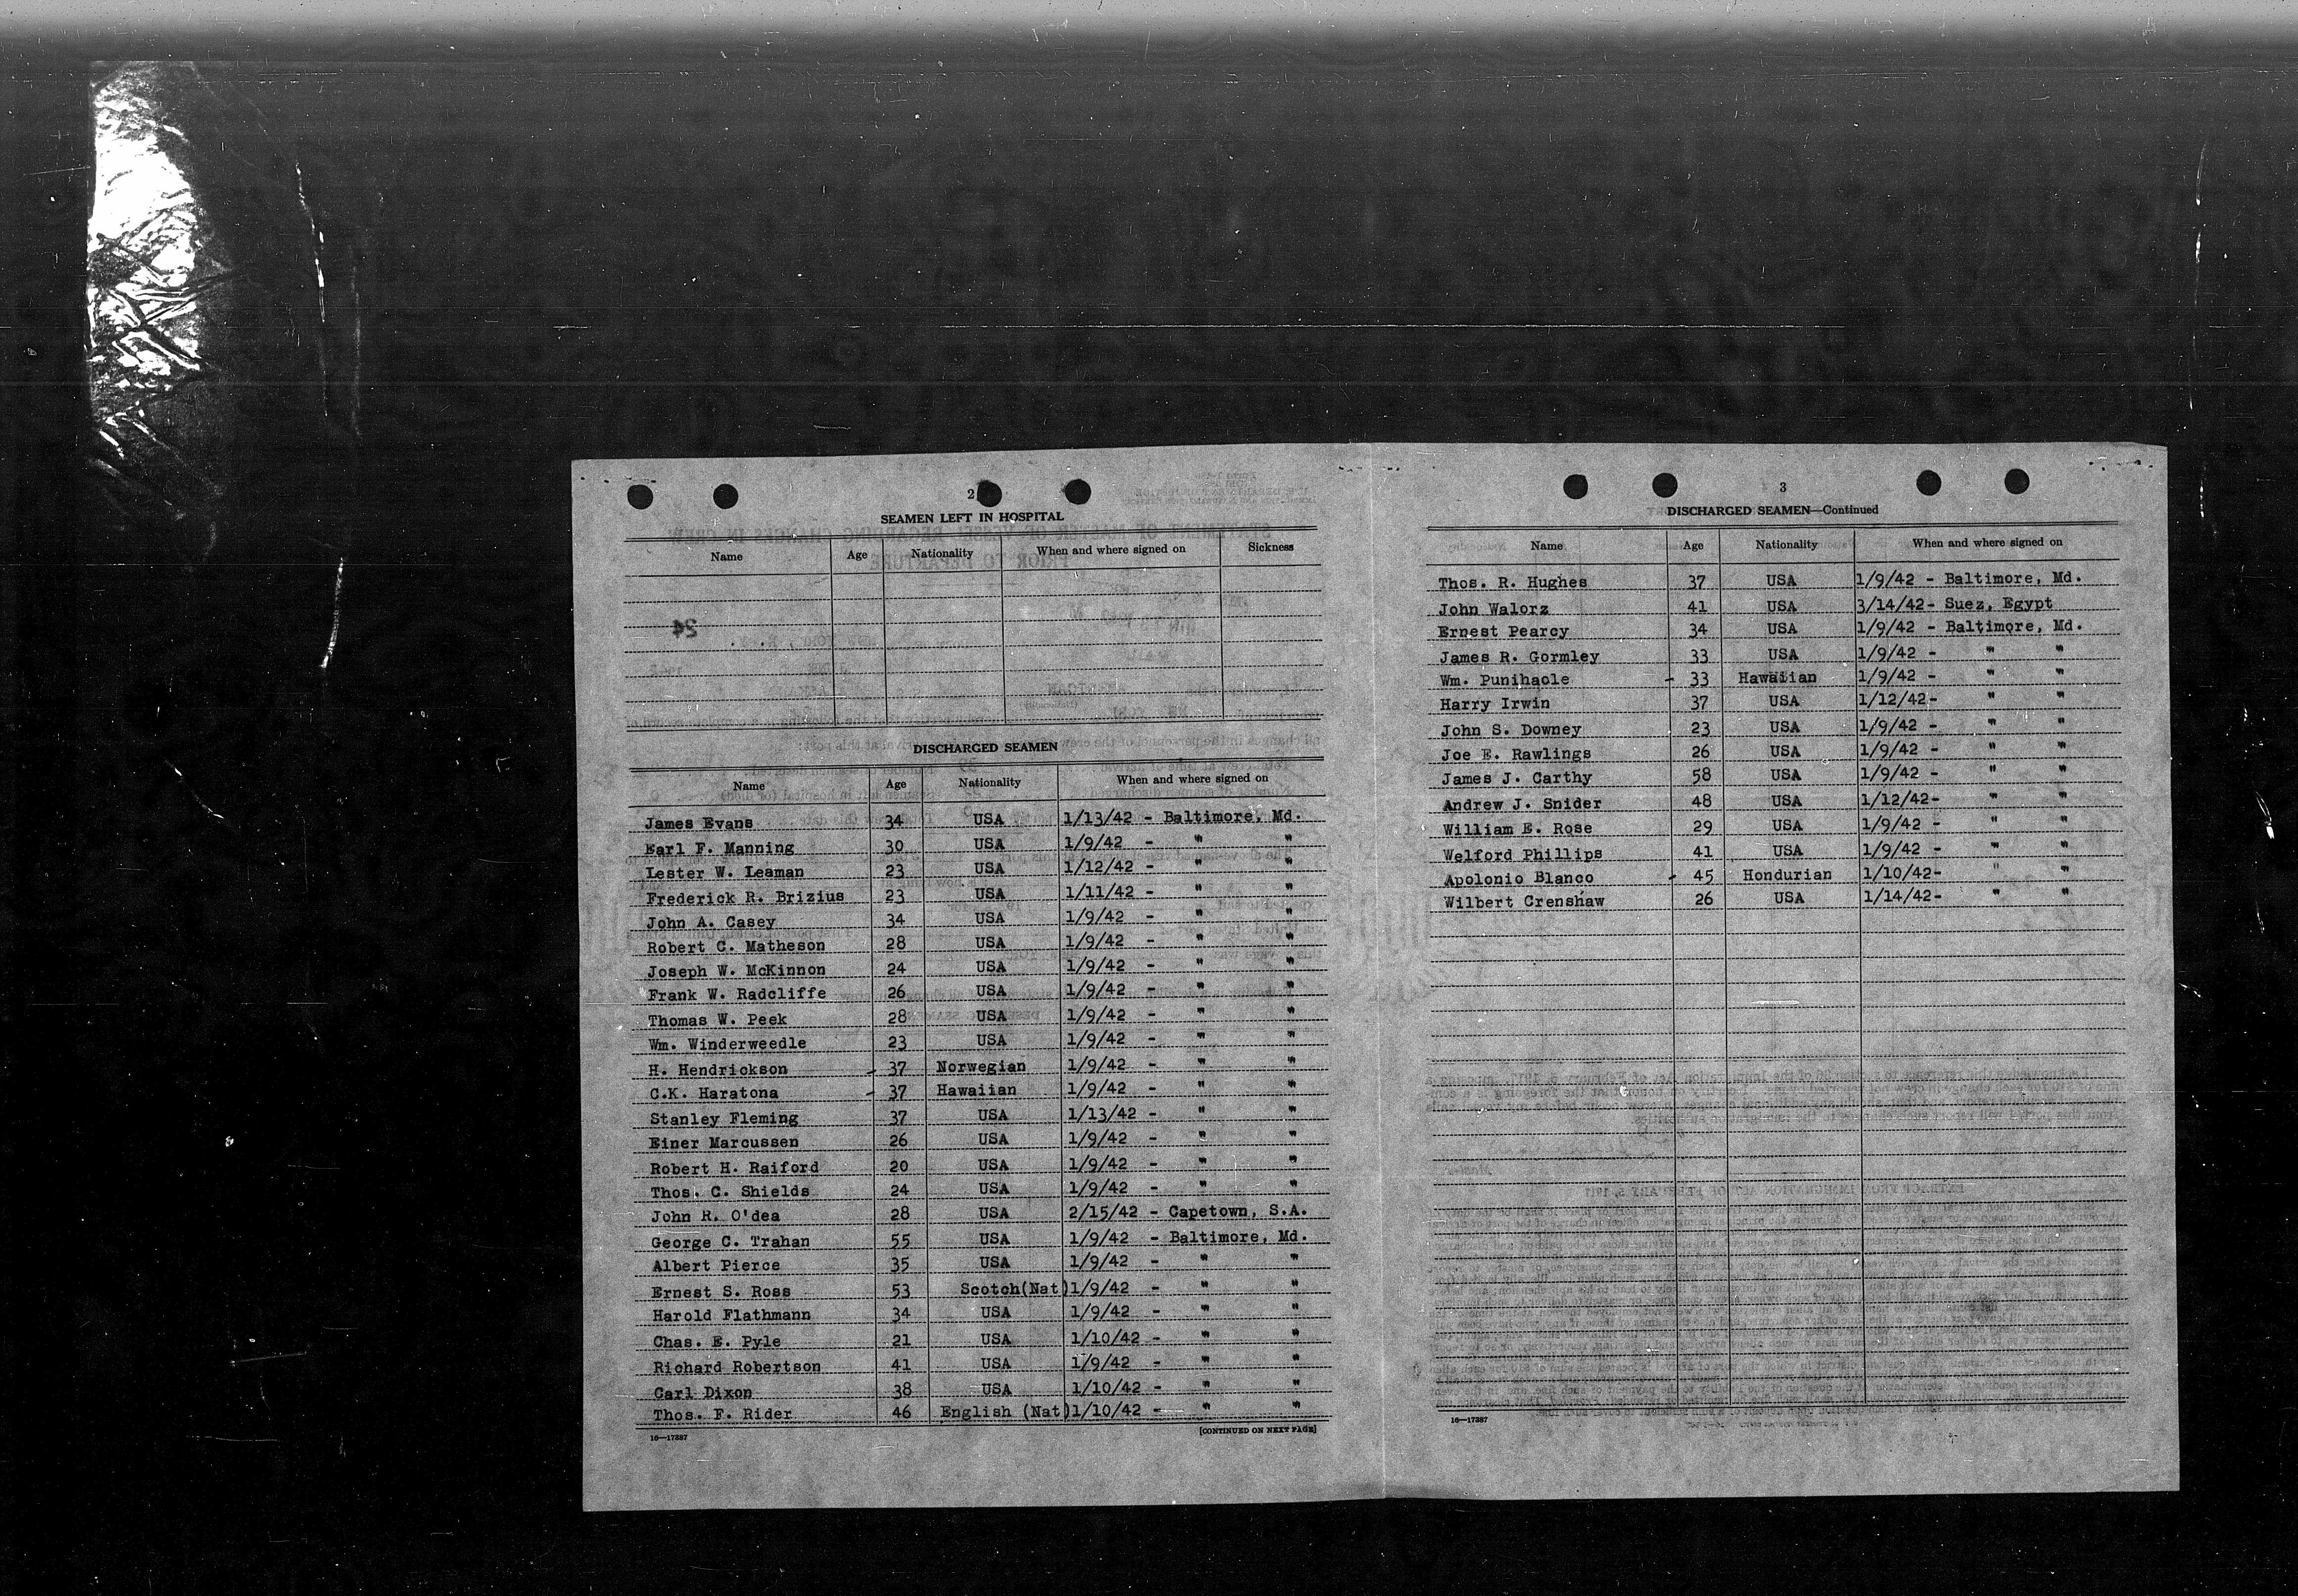 2
SEAMEN LEFT IN HOSPITAL
Name Age Nationality When and where signed on Sickness
DISCHARGED SEAMEN
Name Age Nationality When and where signed on
James Evans 34 USA 1/13/42 - Baltimore, Md.
Earl F. Manning 30 USA 1/9/42 - " "
Lester W. Leaman 23 USA 1/12/42 - " "
Frederick R. Brizius 23 USA 1/11/42 - " "
John A. Casey 34 USA 1/9/42 - " "
Robert C. Matheson 28 USA 1/9/42 - " "
Joseph W. McKinnon 24 USA 1/9/42 - " "
Frank W. Radcliffe 26 USA 1/9/42 - " "
Thomas W. Peek 28 USA 1/9/42 - " "
Wm. Winderweedle 23 USA 1/9/42 - " "
H. Hendrickson - 37 Norwegian 1/9/42 - " "
C.K. Haratona - 37 Hawaiian 1/9/42 - " "
Stanley Fleming 37 USA 1/13/42 - " "
Einer Marcussen 26 USA 1/9/42 - " "
Robert H. Raiford 20 USA 1/9/42 - " "
Thos. C. Shields 24 USA 1/9/42 - " "
John R. O'dea 28 USA 2/15/42 - Capetown, S.A.
George C. Trahan 55 USA 1/9/42 - Baltimore, Md.
Albert Pierce 35 USA 1/9/42 - " "
Ernest S. Ross 53 Scotch(Nat) 1/9/42 - " "
Harold Flathmann 34 USA 1/9/42 - " "
Chas. E. Pyle 21 USA 1/10/42 - " "
Richard Robertson 41 USA 1/9/42 - " "
Carl Dixon 38 USA 1/10/42 - " "
Thos. F. Rider 46 English (Nat) 1/10/42 - " "
16—17387 [CONTINUED ON NEXT PAGE]
3
DISCHARGED SEAMEN—Continued
Name Age Nationality When and where signed on
Thos. R. Hughes 37 USA 1/9/42 - Baltimore, Md.
John Walorz 41 USA 3/14/42- Suez, Egypt
Ernest Pearcy 34 USA 1/9/42 - Baltimore, Md.
James R. Gormley 33 USA 1/9/42 - " "
Wm. Punihaole - 33 Hawaiian 1/9/42 - " "
Harry Irwin 37 USA 1/12/42- " "
John S. Downey 23 USA 1/9/42 - " "
Joe E. Rawlings 26 USA 1/9/42 - " "
James J. Carthy 58 USA 1/9/42 - " "
Andrew J. Snider 48 USA 1/12/42- " "
William E. Rose 29 USA 1/9/42 - " "
Welford Phillips 41 USA 1/9/42 - " "
Apolonio Blanco - 45 Hondurian 1/10/42- " "
Wilbert Crenshaw 26 USA 1/14/42- " "
16—17387